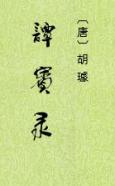 〔唐〕胡璩
譚賓录